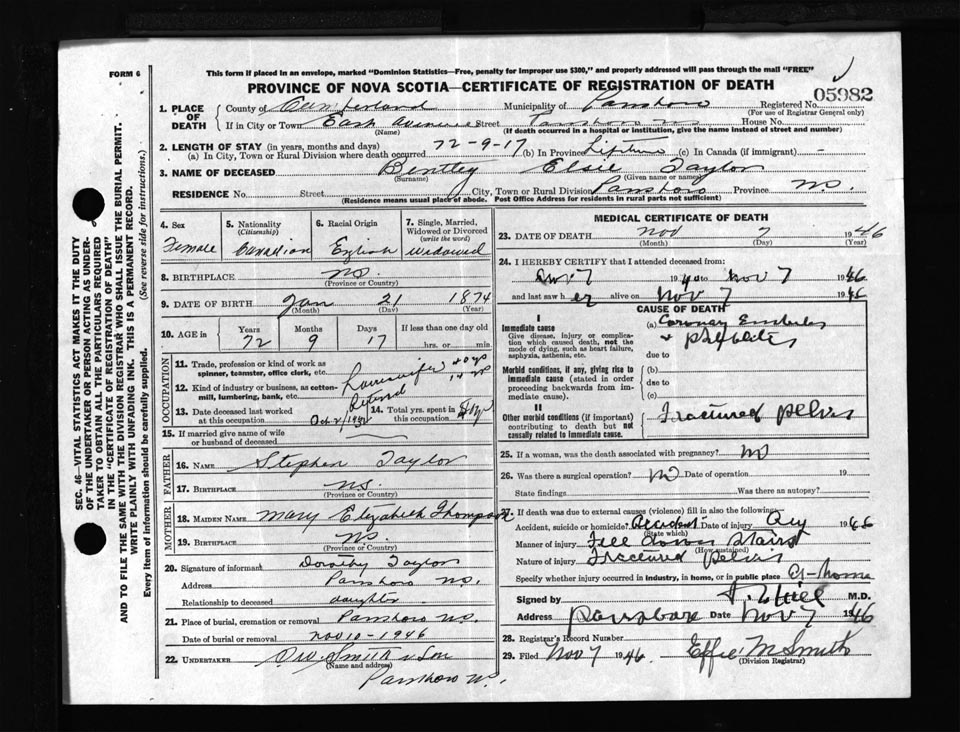 FORM 6
This form if placed in an envelope, marked "Dominion Statistics—Free, penalty for improper use $300," and properly addressed will pass through the mail "FREE"
PROVINCE OF NOVA SCOTIA—CERTIFICATE OF REGISTRATION OF DEATH
05982
1. PLACE OF DEATH
County of Cumberland Municipality of Parrsboro Registered No.
(For use of Registrar General only)
If in City or Town East Avenue Street Parrsboro NS House No.
(Name) (If death occurred in a hospital or institution, give the name instead of street and number)
2. LENGTH OF STAY (in years, months and days)
(a) In City, Town or Rural Division where death occurred 72-9-17 (b) In Province Lifetime (c) In Canada (if immigrant) -
3. NAME OF DECEASED Bentley Elsie Taylor
(Surname) (Given name or names)
RESIDENCE No. Street City, Town or Rural Division Parrsboro Province NS.
(Residence means usual place of abode. Post Office Address for residents in rural parts not sufficient)
4. Sex
Female
5. Nationality (Citizenship)
Canadian
6. Racial Origin
English
7. Single, Married, Widowed or Divorced (write the word)
widowed
8. BIRTHPLACE NS.
(Province or Country)
9. DATE OF BIRTH Jan 21 1874
(Month) (Day) (Year)
10. AGE in Years Months Days If less than one day old
72 9 17 hrs. or min.
OCCUPATION
11. Trade, profession or kind of work as spinner, teamster, office clerk, etc. housewife
12. Kind of industry or business, as cotton-mill, lumbering, bank, etc. Retired
13. Date deceased last worked at this occupation
14. Total yrs. spent in this occupation
15. If married give name of wife or husband of deceased
FATHER
16. NAME Stephen Taylor
17. BIRTHPLACE NS.
(Province or Country)
MOTHER
18. MAIDEN NAME Mary Elizabeth Thompson
19. BIRTHPLACE NS.
(Province or Country)
20. Signature of informant Dorothy Taylor
Address Parrsboro NS.
Relationship to deceased daughter
21. Place of burial, cremation or removal Parrsboro NS.
Date of burial or removal Nov 10-1946
22. UNDERTAKER Smith & Son
(Name and address)
Parrsboro NS.
MEDICAL CERTIFICATE OF DEATH
23. DATE OF DEATH Nov 7 1946
(Month) (Day) (Year)
24. I HEREBY CERTIFY that I attended deceased from:
1940 to Nov 7 1946
and last saw her alive on Nov 7 1946
CAUSE OF DEATH
I
Immediate cause
Give disease, injury or complication which caused death, not the mode of dying, such as heart failure, asphyxia, asthenia, etc.
(a) Coronary Embolus
due to
Morbid conditions, if any, giving rise to immediate cause (stated in order proceeding backwards from immediate cause).
(b)
due to
(c)
II
Other morbid conditions (if important) contributing to death but not causally related to immediate cause.
Fractured pelvis
25. If a woman, was the death associated with pregnancy? no
26. Was there a surgical operation? no Date of operation 19
State findings Was there an autopsy?
27. If death was due to external causes (violence) fill in also the following:
Accident, suicide or homicide? Accident Date of injury 1946
(State which)
Manner of injury Fell down stairs
(How sustained)
Nature of injury Fractured pelvis
Specify whether injury occurred in industry, in home, or in public place at home
Signed by M.D.
Address Parrsboro Date Nov 7 1946
28. Registrar's Record Number
29. Filed Nov 7 1946. Effie M Smith
(Division Registrar)
SEC. 46—VITAL STATISTICS ACT MAKES IT THE DUTY
OF THE UNDERTAKER OR PERSON ACTING AS UNDER-
TAKER TO OBTAIN ALL THE PARTICULARS REQUIRED
IN THE "CERTIFICATE OF REGISTRATION OF DEATH"
AND TO FILE THE SAME WITH THE DIVISION REGISTRAR WHO SHALL ISSUE THE BURIAL PERMIT.
WRITE PLAINLY WITH UNFADING INK. THIS IS A PERMANENT RECORD.
Every item of information should be carefully supplied. (See reverse side for instructions.)